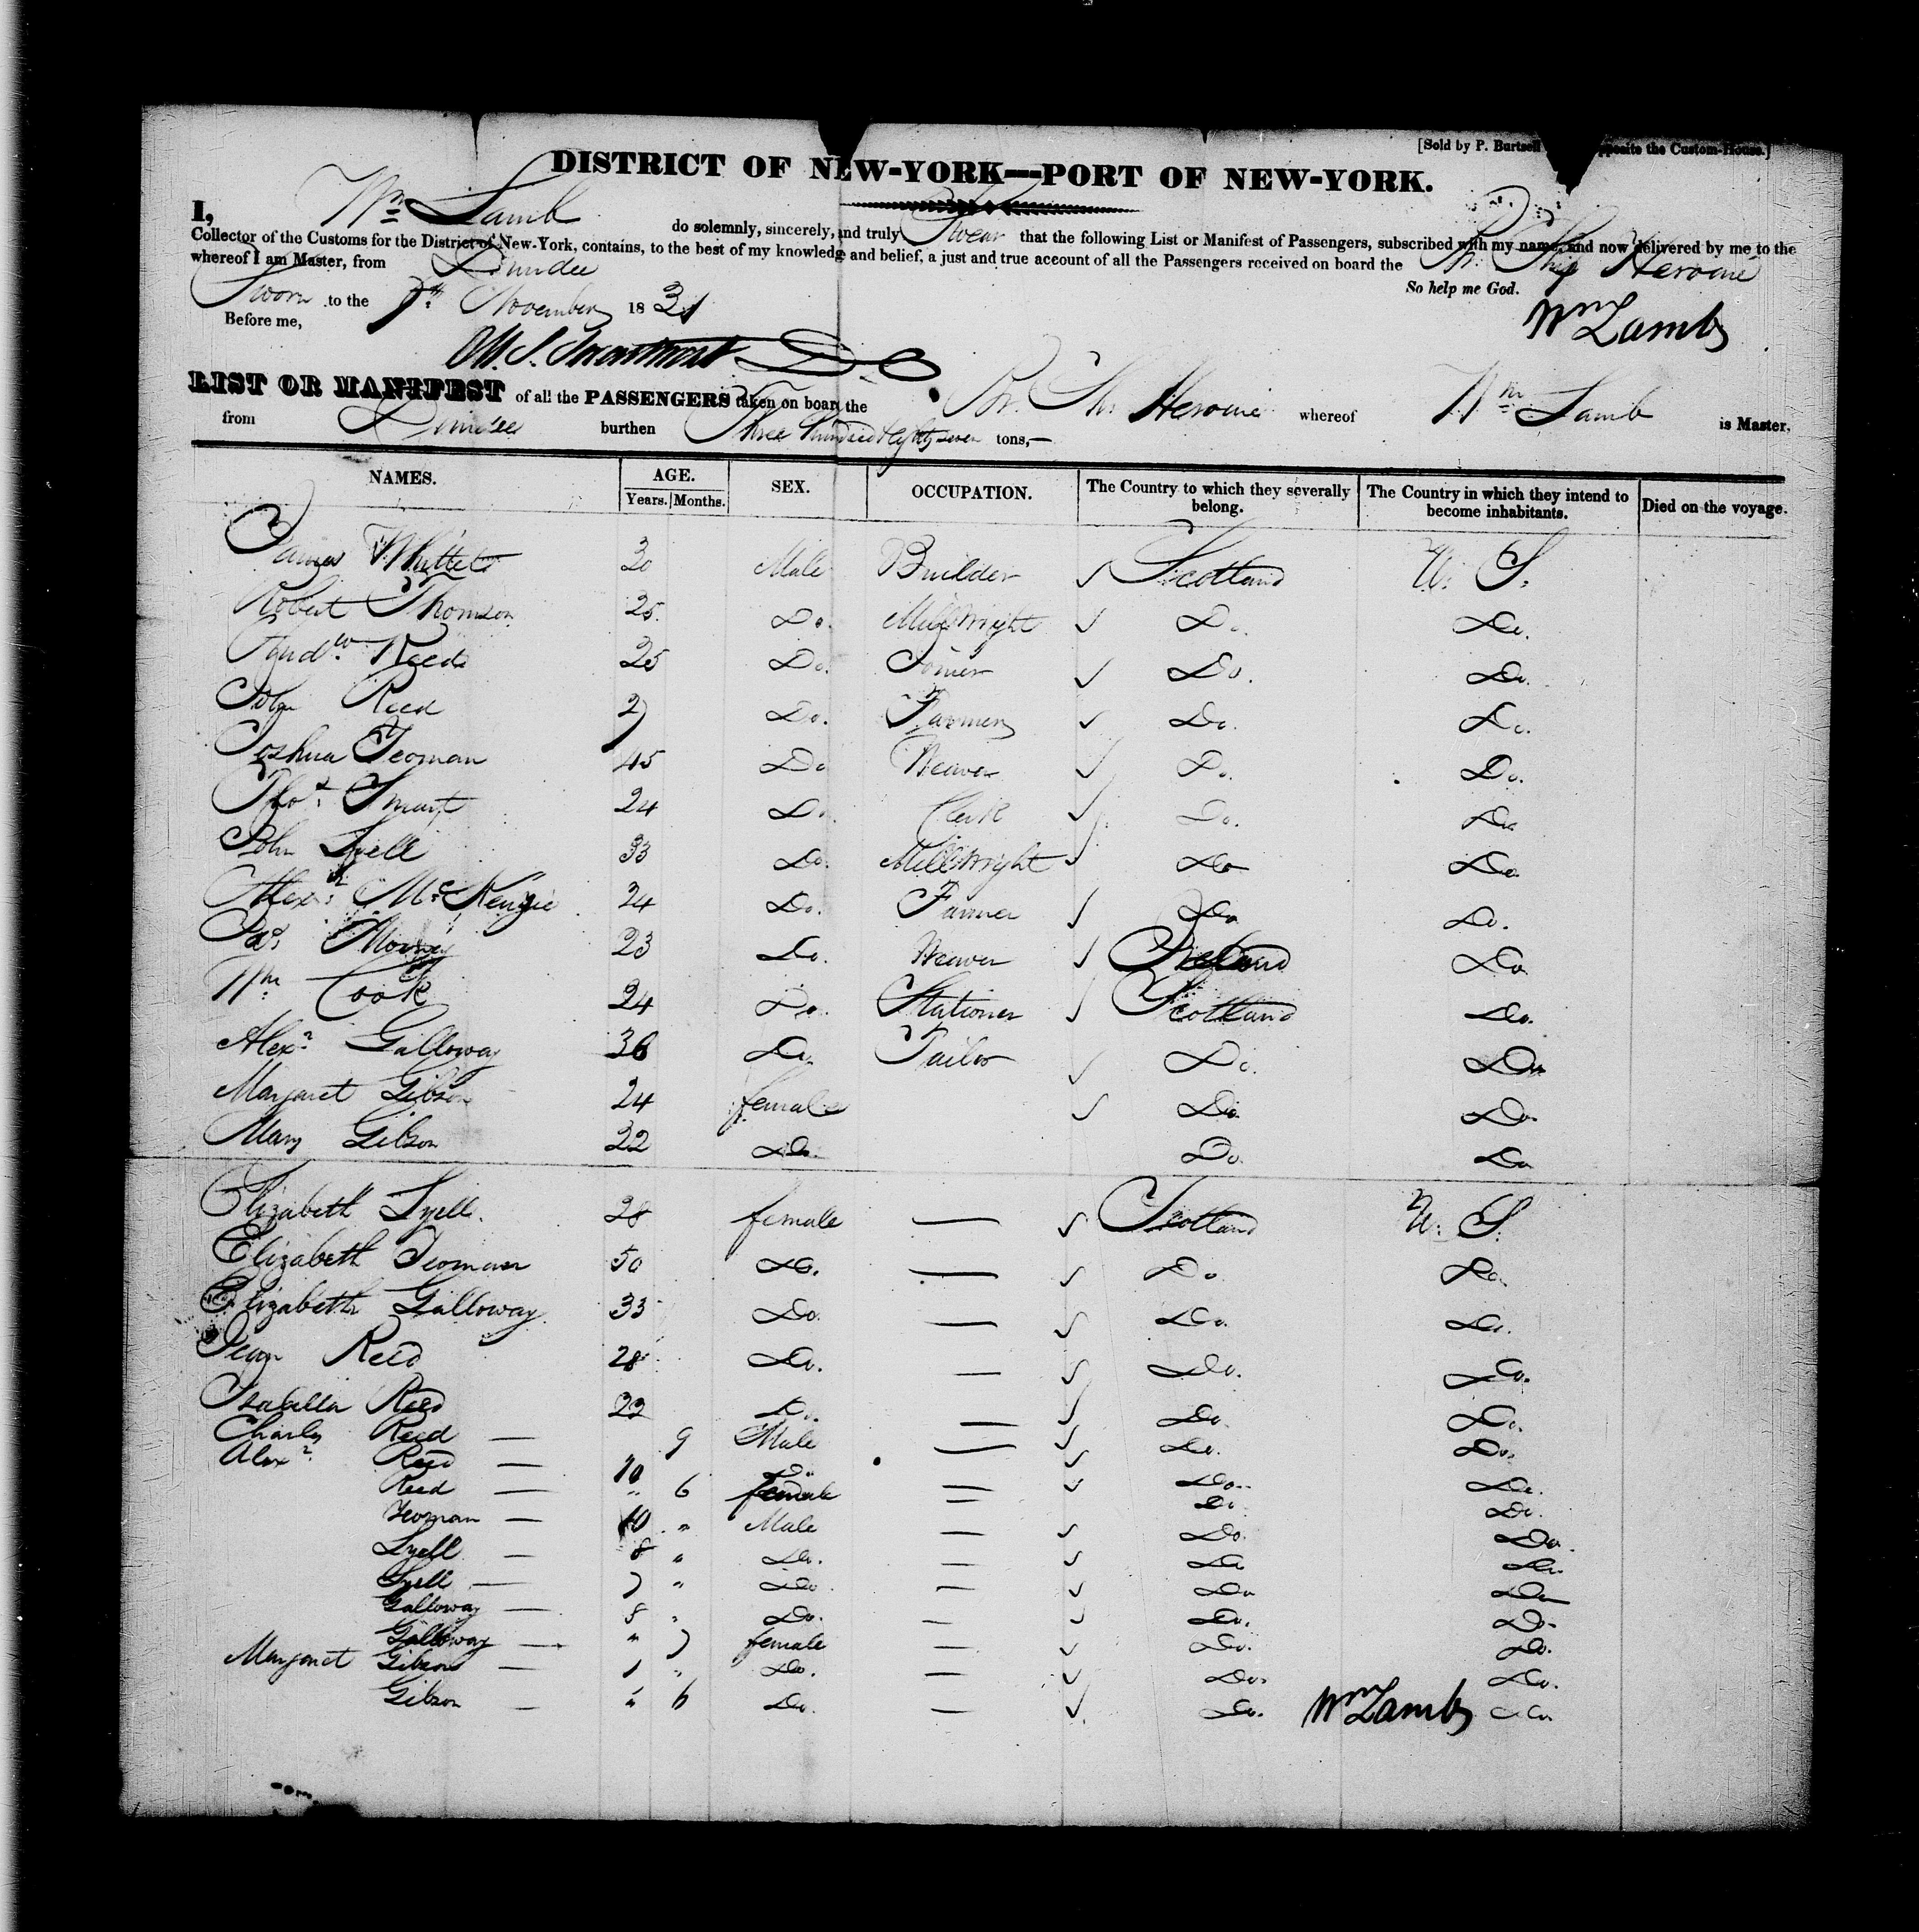 [Sold by P. Burtsell opposite the Custom-House.]
DISTRICT OF NEW-YORK—PORT OF NEW-YORK.
I, Wm Lamb do solemnly, sincerely, and truly Swear that the following List or Manifest of Passengers, subscribed with my name, and now delivered by me to the
Collector of the Customs for the District of New-York, contains, to the best of my knowledge and belief, a just and true account of all the Passengers received on board the Br. Ship Heroine
whereof I am Master, from Dundee
So help me God.
Sworn to the 7th November 1831
Wm Lamb
Before me,
D. C.
LIST OR MANIFEST of all the PASSENGERS taken on board the Br. Sh. Heroine whereof Wm Lamb is Master,
from Dundee burthen Three Hundred & Eighty seven tons,—
NAMES. AGE. SEX. OCCUPATION. The Country to which they severally belong. The Country in which they intend to become inhabitants. Died on the voyage.
Years. Months.
James 30 Male Builder ✓ Scotland U. S.
Robert Thomson 25 Do. Millwright ✓ Do. Do.
Andw. Reed 25 Do. Joiner ✓ Do. Do.
John Reed 27 Do. Farmer ✓ Do. Do.
Joshua Yeoman 45 Do Weaver ✓ Do. Do.
Thos. Smart 24 Do. Clerk ✓ Do. Do
John Lyell 33 Do. Millwright ✓ Do Do
Alexr. McKenzie 24 Do. Farmer ✓ Do Do.
23 Do. Weaver ✓ Ireland Do
Wm. Cook 24 Do. Stationer ✓ Scotland Do.
Alexr. Galloway 36 Do. Tailor ✓ Do. Do
Margaret Gibson 24 female ✓ Do. Do.
Mary Gibson 22 Do. Do. Do
Elizabeth Lyell. 28 female — ✓ Scotland U. S.
Elizabeth Yeoman 50 Do. — ✓ Do Do.
Elizabeth Galloway 33 Do. — ✓ Do. Do.
Jean Reed 28 Do. — ✓ Do. Do.
Isabella Reed 22 Do. — ✓ Do. Do.
Charles Reed — 9 Male — ✓ Do. Do.
Alexr. Reed — 10 Do — ✓ Do. Do.
Reed — " 6 female — ✓ Do. Do.
Yeoman — 10 " Male — ✓ Do. Do.
Lyell — 8 " Do. — ✓ Do Do.
Lyell — 7 " Do. — ✓ Do Do
Galloway — 5 " Do. — ✓ Do. Do.
Galloway — " 7 female — ✓ Do. Do.
Margaret Gibson — 1 " Do. — ✓ Do. Do.
Gibson — " 6 Do. — ✓ Do. Do
Wm Lamb